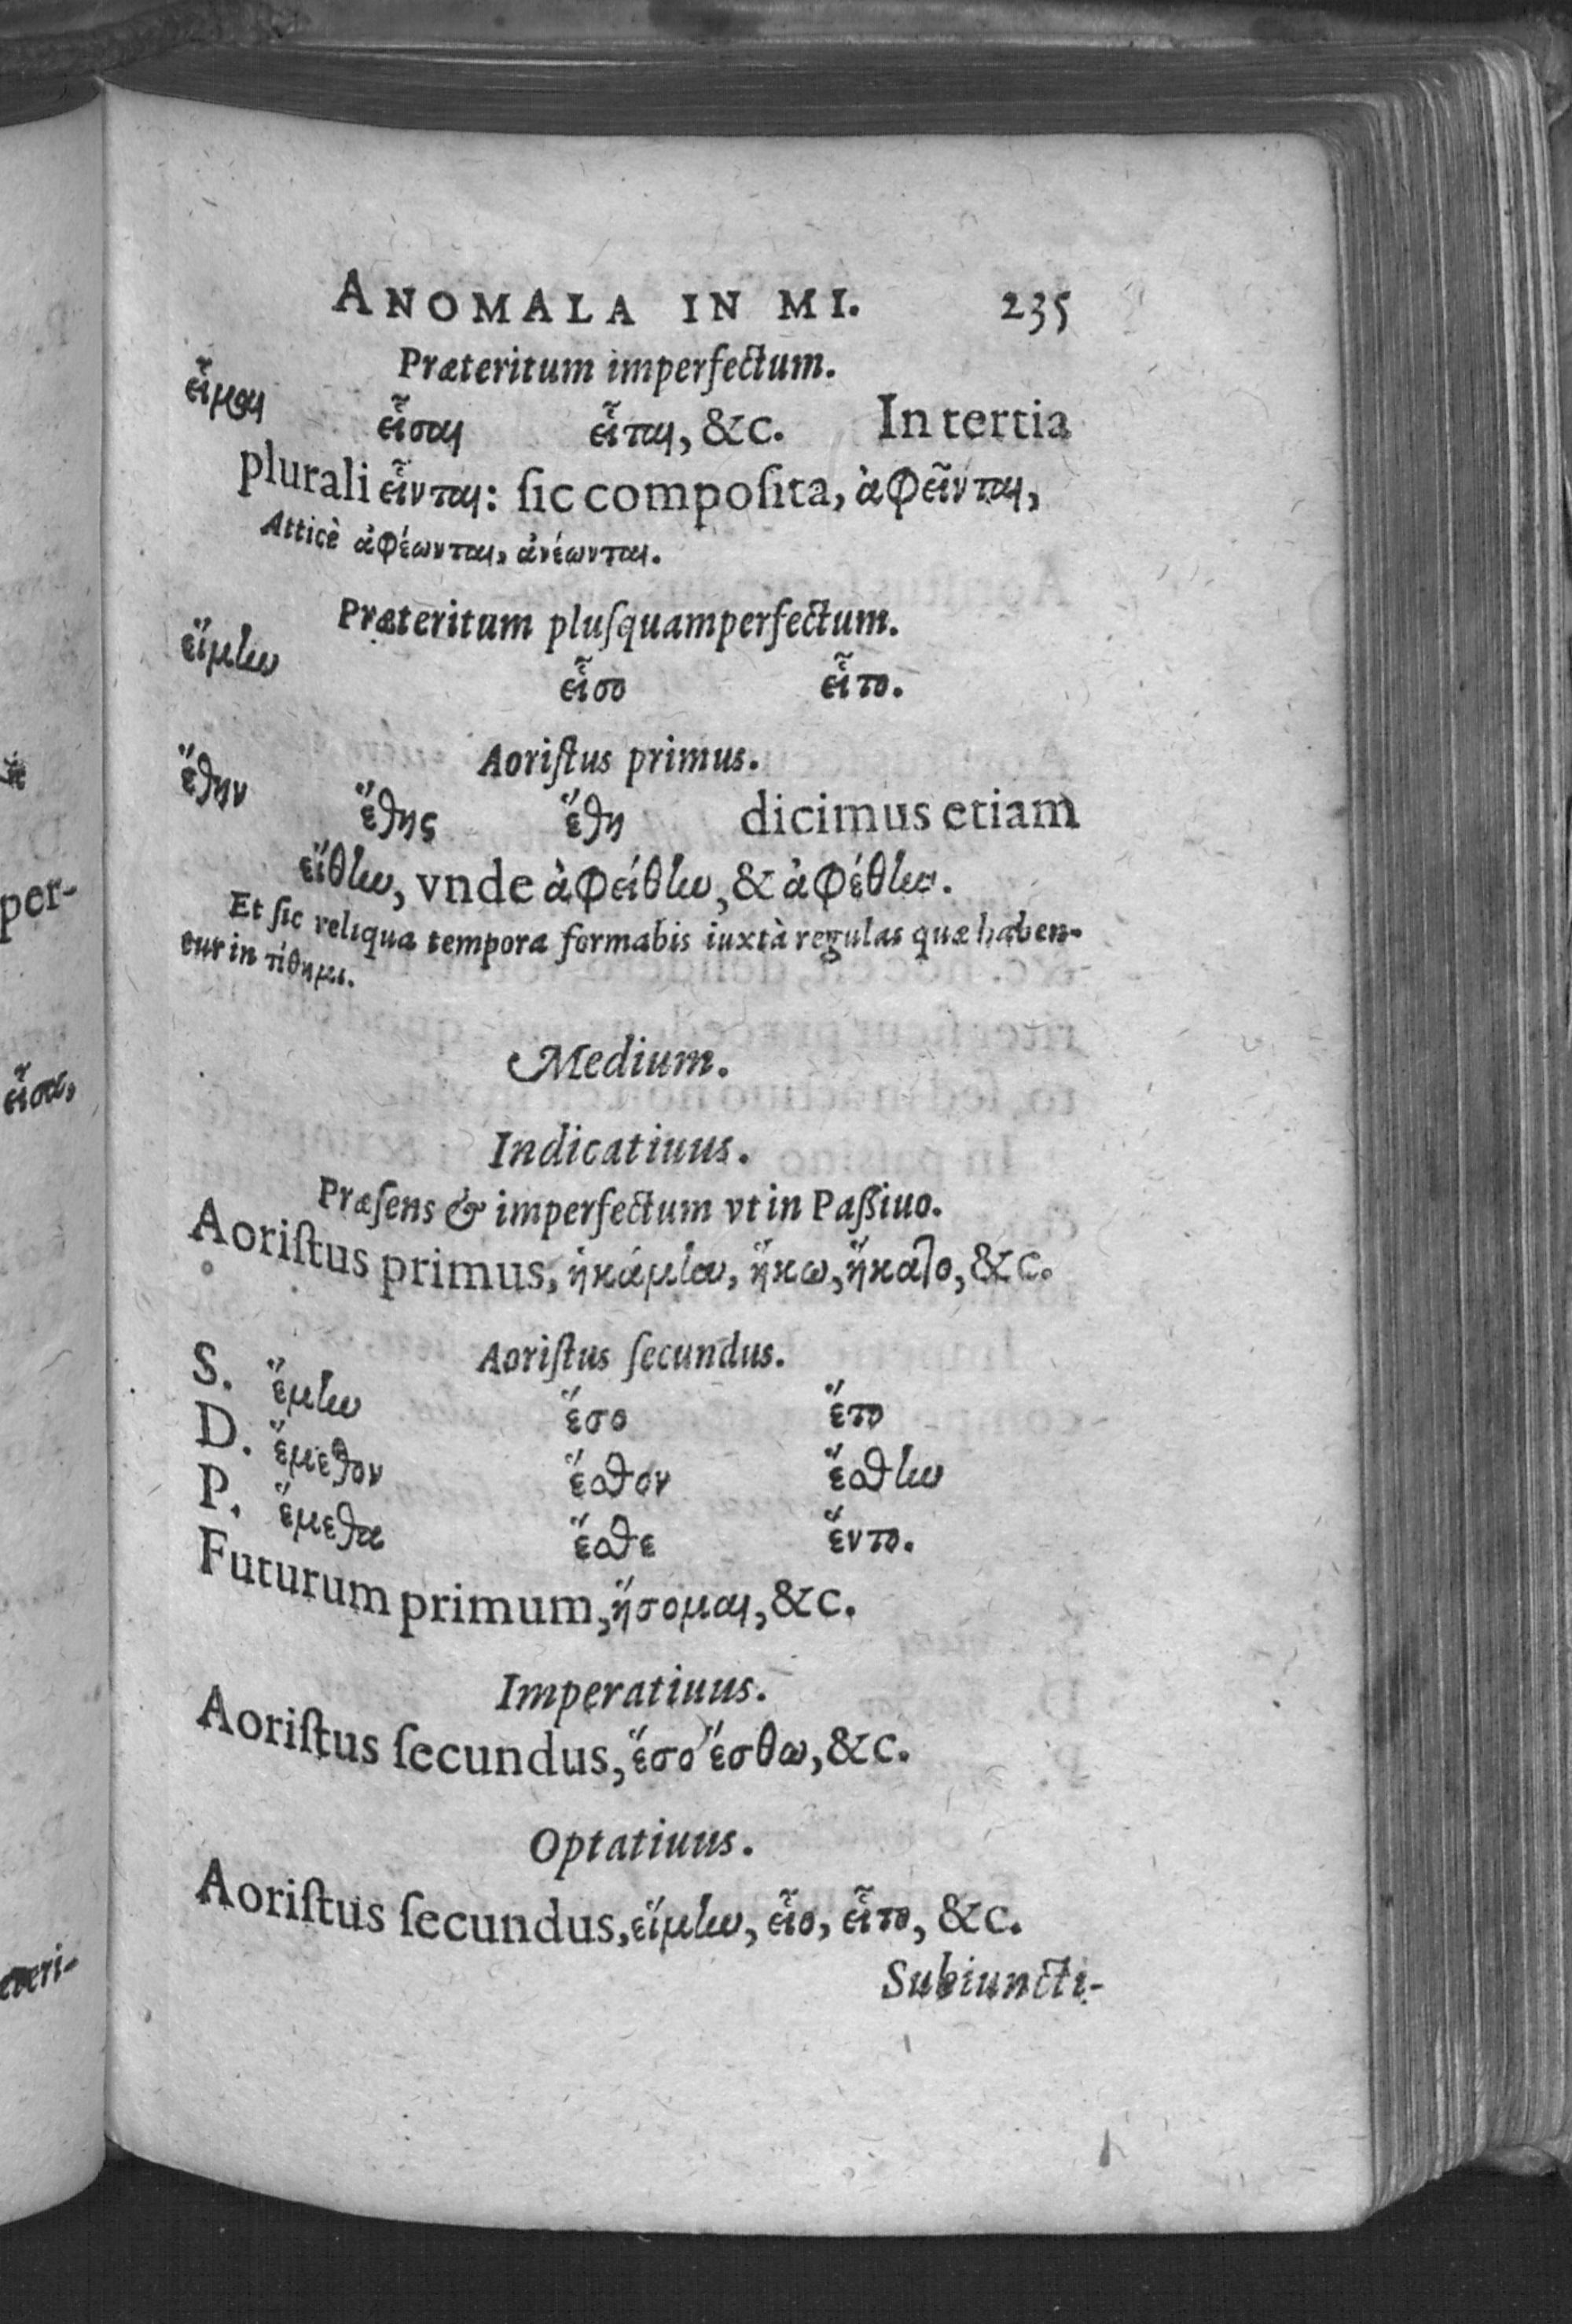 ANOMALA IN MI. 235
Præteritum imperfectum.
εἷμαι εἷσαι εἷται, &c. In tertia
plurali εἷνται: ſic compoſita, ἀφεῖνται,
Atticè ἀφέωνται, ἀνέωνται.
Præteritum pluſquamperfectum.
εἵμην εἷσο εἷτο.
Aoriſtus primus.
ἕθην ἕθης ἕθη dicimus etiam
εἵθην, vnde ἀφείθην, & ἀφέθην.
Et ſic reliqua tempora formabis iuxtà regulas quæ haben-
tur in τίθημι.
Medium.
Indicatiuus.
Præſens & imperfectum vt in Paſſiuo.
Aoriſtus primus, ἡκάμην, ἥκω, ἥκατο, &c.
Aoriſtus ſecundus.
S. ἕμην ἕσο ἕτο
D. ἕμεθον ἕσθον ἕσθην
P. ἕμεθα ἕσθε ἕντο.
Futurum primum, ἥσομαι, &c.
Imperatiuus.
Aoriſtus ſecundus, ἕσο ἕσθω, &c.
Optatiuus.
Aoriſtus ſecundus, εἵμην, εἷο, εἷτο, &c.
Subiuncti-
per-
εἷσα,